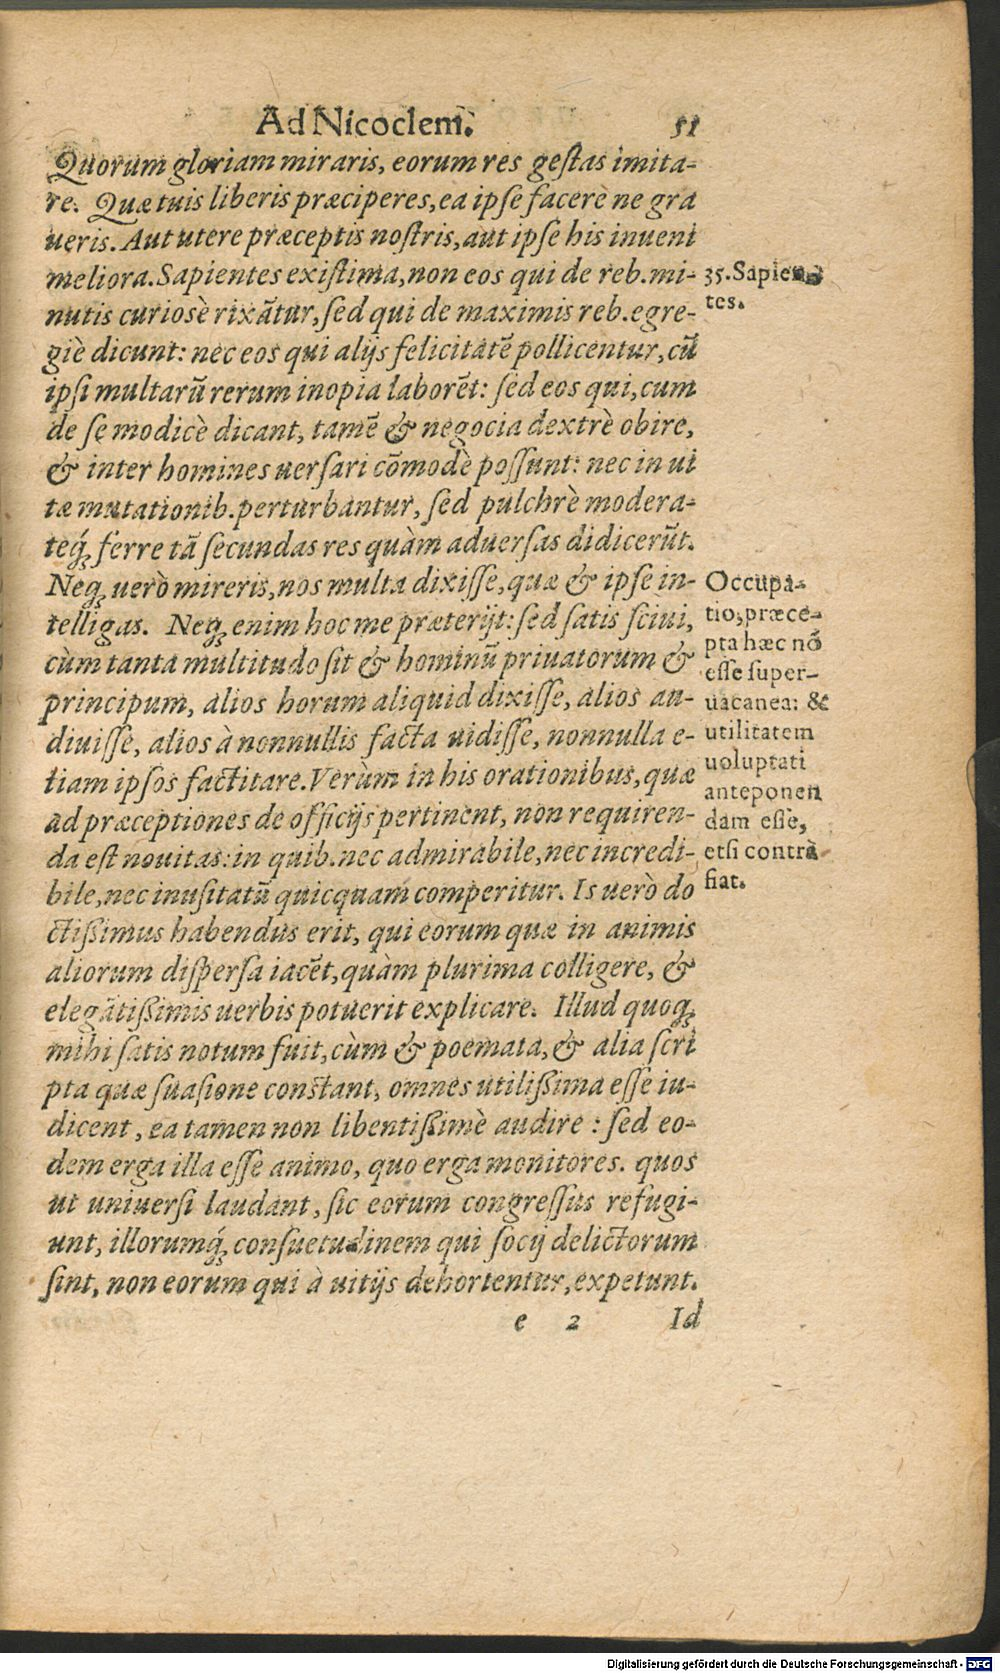 Ad Nicoclem. 51
Quorum gloriam miraris, eorum res gestas imita-
re. Quæ tuis liberis præciperes, ea ipse facere ne gra
ueris. Aut utere præceptis nostris, aut ipse his inueni
meliora. Sapientes existima, non eos qui de reb. mi-
nutis curiosè rixātur, sed qui de maximis reb. egre-
giè dicunt: nec eos qui alijs felicitatē pollicentur, cū
ipsi multarū rerum inopia laborēt: sed eos qui, cum
de se modicè dicant, tamē & negocia dextrè obire,
& inter homines uersari cōmodè possunt: nec in ui
tæ mutationib. perturbantur, sed pulchrè modera-
teq́; ferre tā secundas res quàm aduersas didicerūt.
Neq; uerò mireris, nos multa dixisse, quæ & ipse in-
telligas. Neq; enim hoc me præterijt: sed satis sciui,
cùm tanta multitudo sit & hominū priuatorum &
principum, alios horum aliquid dixisse, alios au-
diuisse, alios à nonnullis facta uidisse, nonnulla e-
tiam ipsos factitare. Verùm in his orationibus, quæ
ad præceptiones de officijs pertinent, non requiren-
da est nouitas: in quib. nec admirabile, nec incredi-
bile, nec inusitatū quicquam comperitur. Is uerò do
ctißimus habendus erit, qui eorum quæ in animis
aliorum dispersa iacēt, quàm plurima colligere, &
elegātißimis uerbis potuerit explicare. Illud quoq;
mihi satis notum fuit, cùm & poemata, & alia scri
pta quæ suasione constant, omnes utilißima esse iu-
dicent, ea tamen non libentißimè audire: sed eo-
dem erga illa esse animo, quo erga monitores. quos
ut uniuersi laudant, sic eorum congressus refugi-
unt, illorumq́; consuetudinem qui socij delictorum
sint, non eorum qui à uitijs dehortentur, expetunt.
e 2 Id
35. Sapien-
tes.
Occupa-
tio, præce-
pta hæc nō
esse super-
uacanea: &
utilitatem
uoluptati
anteponen
dam esse,
etsi contrà
fiat.
Digitalisierung gefördert durch die Deutsche Forschungsgemeinschaft - DFG